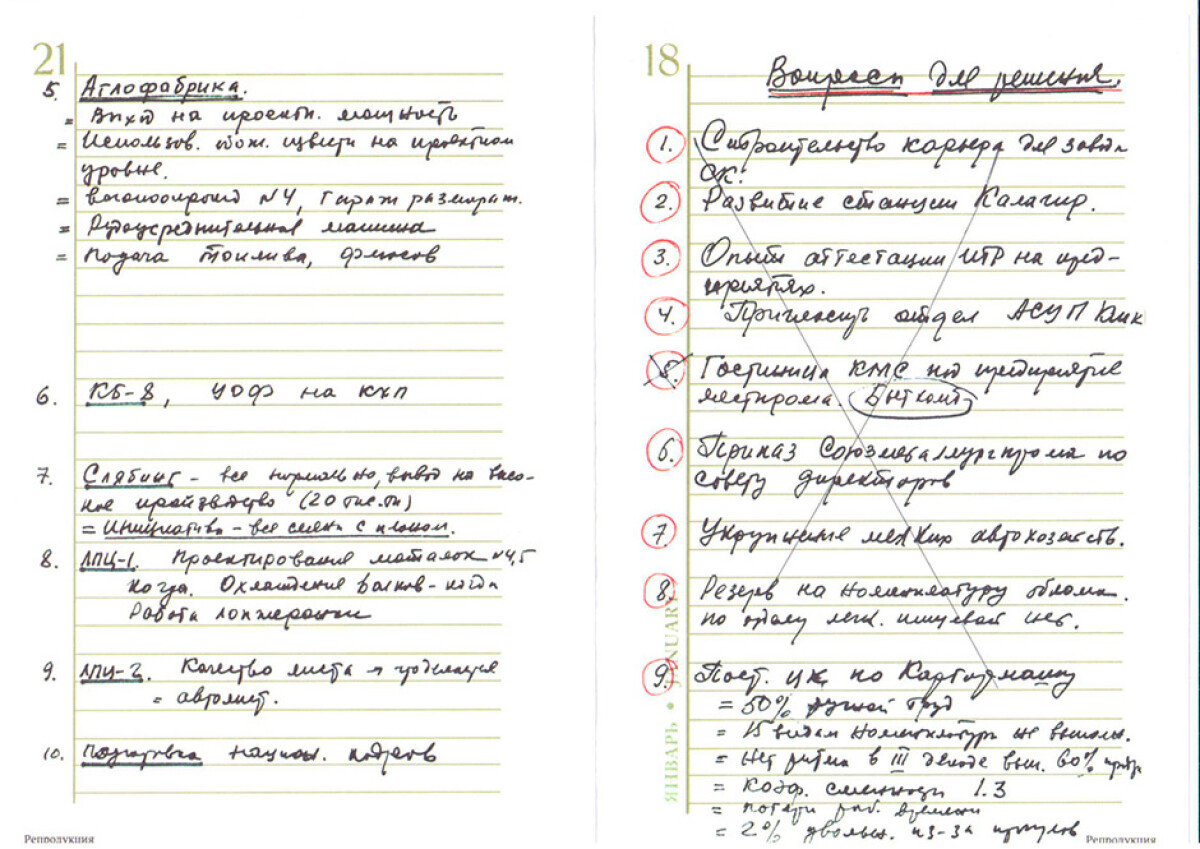 21
5. Аглофабрика.
= Выход на проектн. мощность
= Использов. обож. извести на проектном
уровне.
= вагоноопрокид №4, Гараж размораж.
= Рудоусреднительная машина
= Подача топлива, флюсов
6. КБ-8, УОФ на КХП
7. Слябинг - все нормально, вывод на высо-
кое производство (20 тыс.тн)
= Инициатива - все смены с планом.
8. ЛПЦ-1. Проектирование моталок №4,5
когда. Охлаждение валков - когда
Работа
9. ЛПЦ-2. Качество листа →
= автолист.
10. Подготовка национ. кадров
Репродукция
18
Вопросы для решения.
1. Строительство карьера для завода
СК.
2. Развитие станции Калагир.
3. Опыт аттестации ИТР на пред-
приятиях.
4. Пригласить отдел АСУП КМК
5. Гостиница КМС на предприятие
местпрома. Быткомб
6. Приказ Союзметаллургпрома по
совету директоров
7. Укрупнение мелких автохозяйств.
8. Резерв на номенклатуру обкома.
по отделу легк. пищевой нет.
9. Пост. ЦК по Каргормашу
= 50% ручной труд
= 15 видам номенклатуры не выполн.
= Нет ритма в III декаде вып. 60%
= Коэф. сменности 1.3
= потери раб. времени
= 2% увольн. из-за прогулов
ЯНВАРЬ • JANUARY
Репродукция